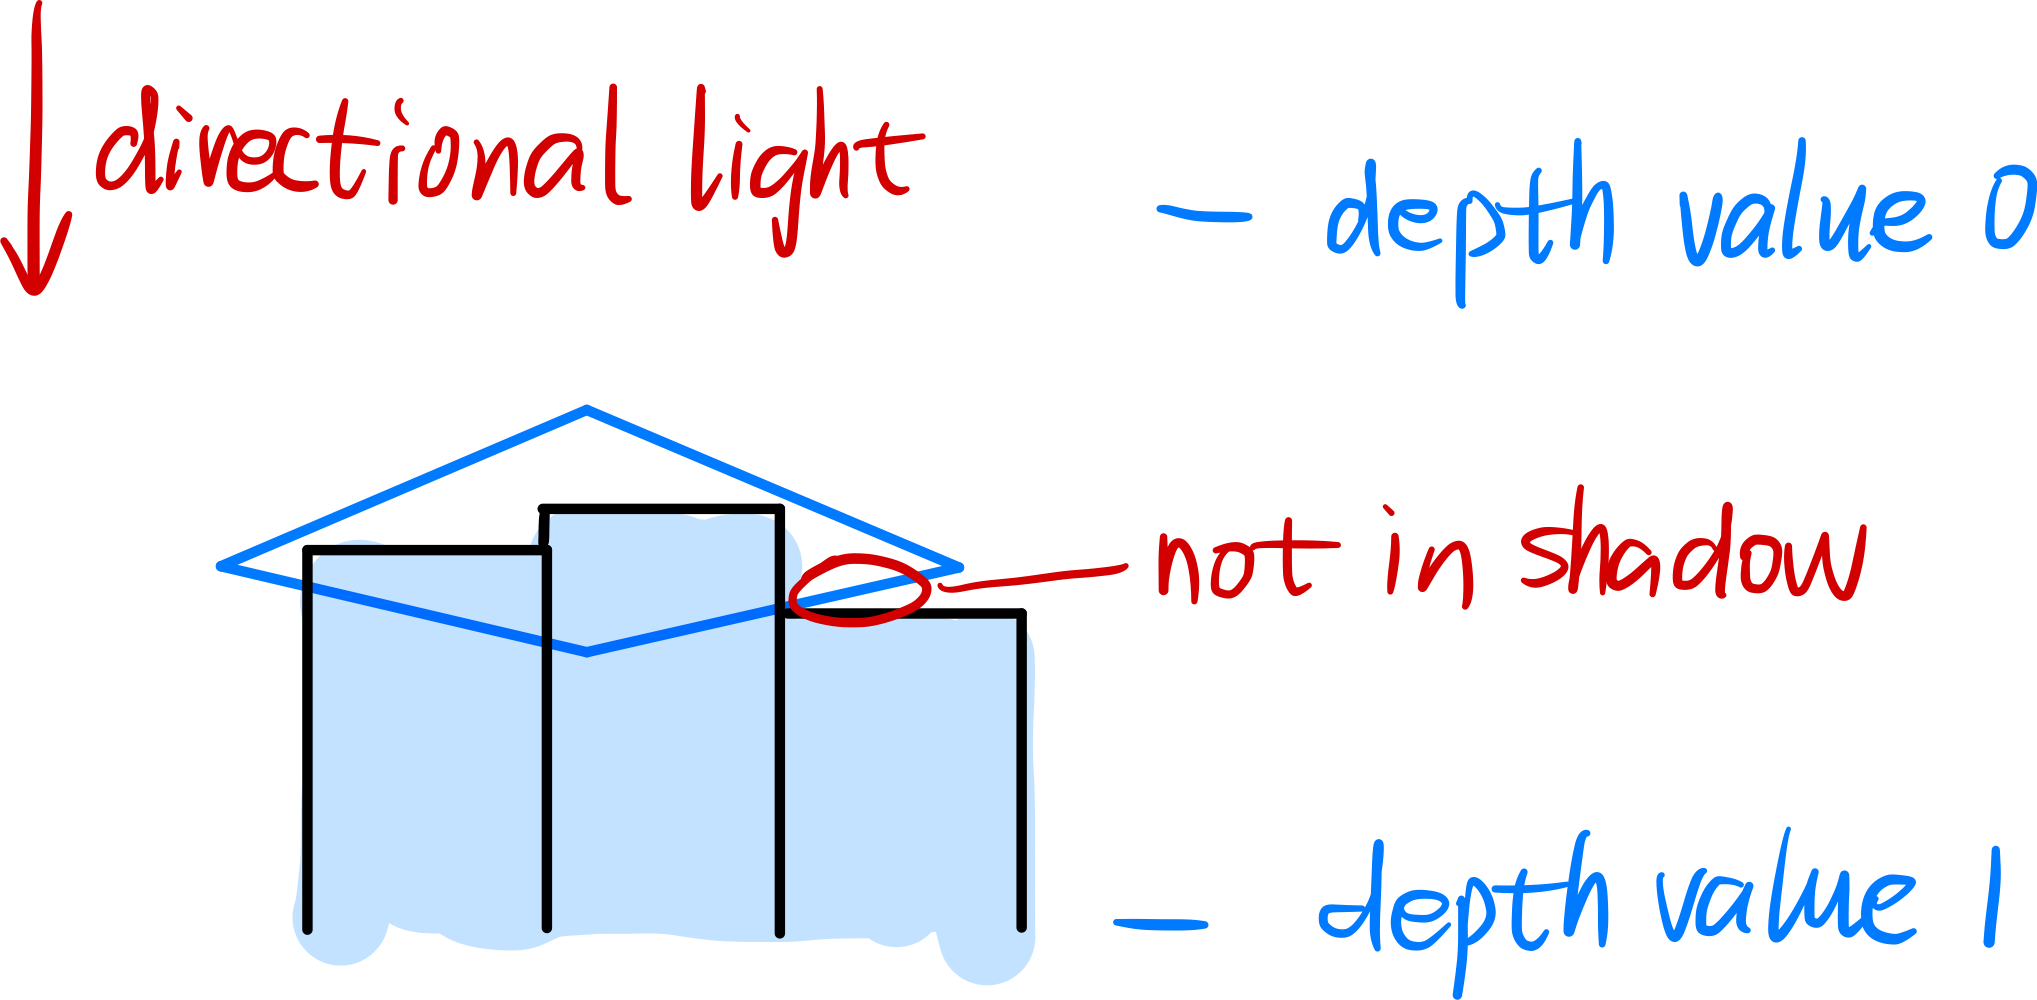 directional light
depth value 0
not in shadow
depth value 1